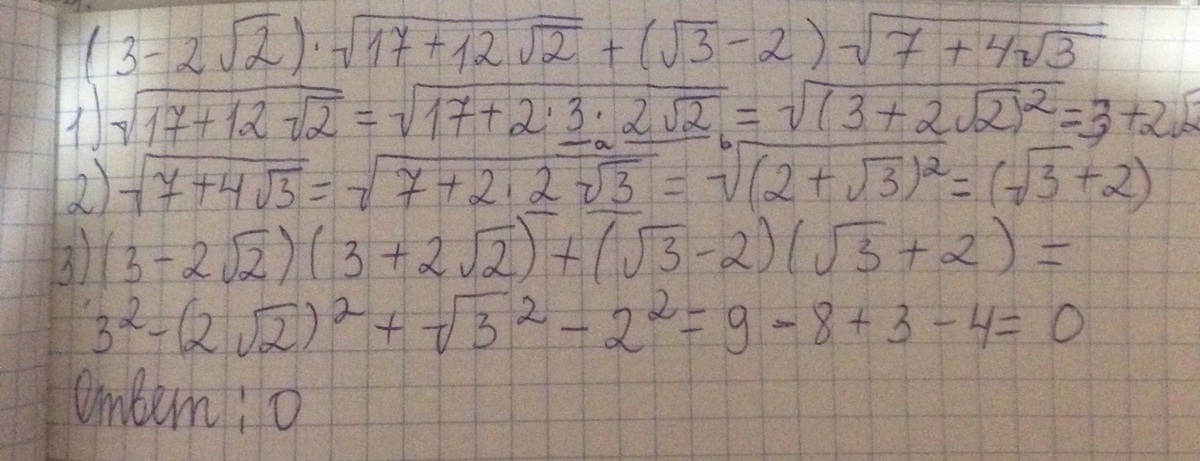 (3-2√2)·√(17+12√2) + (√3-2)√(7+4√3)
1) √(17+12√2) = √(17+2·3·2√2) = √((3+2√2)²) = 3+2√2
a b
2) √(7+4√3) = √(7+2·2√3) = √((2+√3)²) = (√3+2)
3) (3-2√2)(3+2√2)+(√3-2)(√3+2) =
3²-(2√2)²+√3²-2² = 9-8+3-4 = 0
Ответ: 0